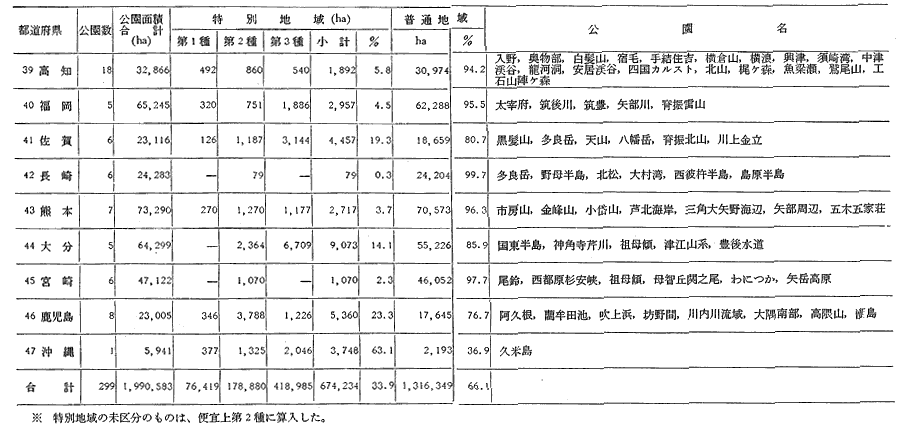 都道府県 公園数 公園面積合計(ha) 特別地域(ha) 普通地域 公園名
第1種 第2種 第3種 小計 % ha %
39 高知 18 32,866 492 860 540 1,892 5.8 30,974 94.2 入野，奥物部，白髪山，宿毛，手結住吉，横倉山，横浪，興津，須崎湾，中津
渓谷，龍河洞，安居渓谷，四国カルスト，北山，梶ケ森，魚梁瀬，鷲尾山，工
石山陣ケ森
40 福岡 5 65,245 320 751 1,886 2,957 4.5 62,288 95.5 太宰府，筑後川，筑豊，矢部川，脊振雷山
41 佐賀 6 23,116 126 1,187 3,144 4,457 19.3 18,659 80.7 黒髪山，多良岳，天山，八幡岳，脊振北山，川上金立
42 長崎 6 24,283 — 79 — 79 0.3 24,204 99.7 多良岳，野母半島，北松，大村湾，西彼杵半島，島原半島
43 熊本 7 73,290 270 1,270 1,177 2,717 3.7 70,573 96.3 市房山，金峰山，小岱山，芦北海岸，三角大矢野海辺，矢部周辺，五木五家荘
44 大分 5 64,299 — 2,364 6,709 9,073 14.1 55,226 85.9 国東半島，神角寺芹川，祖母傾，津江山系，豊後水道
45 宮崎 6 47,122 — 1,070 — 1,070 2.3 46,052 97.7 尾鈴，西都原杉安峡，祖母傾，母智丘関之尾，わにつか，矢岳高原
46 鹿児島 8 23,005 346 3,788 1,226 5,360 23.3 17,645 76.7 阿久根，藺牟田池，吹上浜，坊野間，川内川流域，大隅南部，高隈山，甑島
47 沖縄 1 5,941 377 1,325 2,046 3,748 63.1 2,193 36.9 久米島
合計 299 1,990,583 76,419 178,880 418,985 674,234 33.9 1,316,349 66.1
※ 特別地域の未区分のものは、便宜上第2種に算入した。